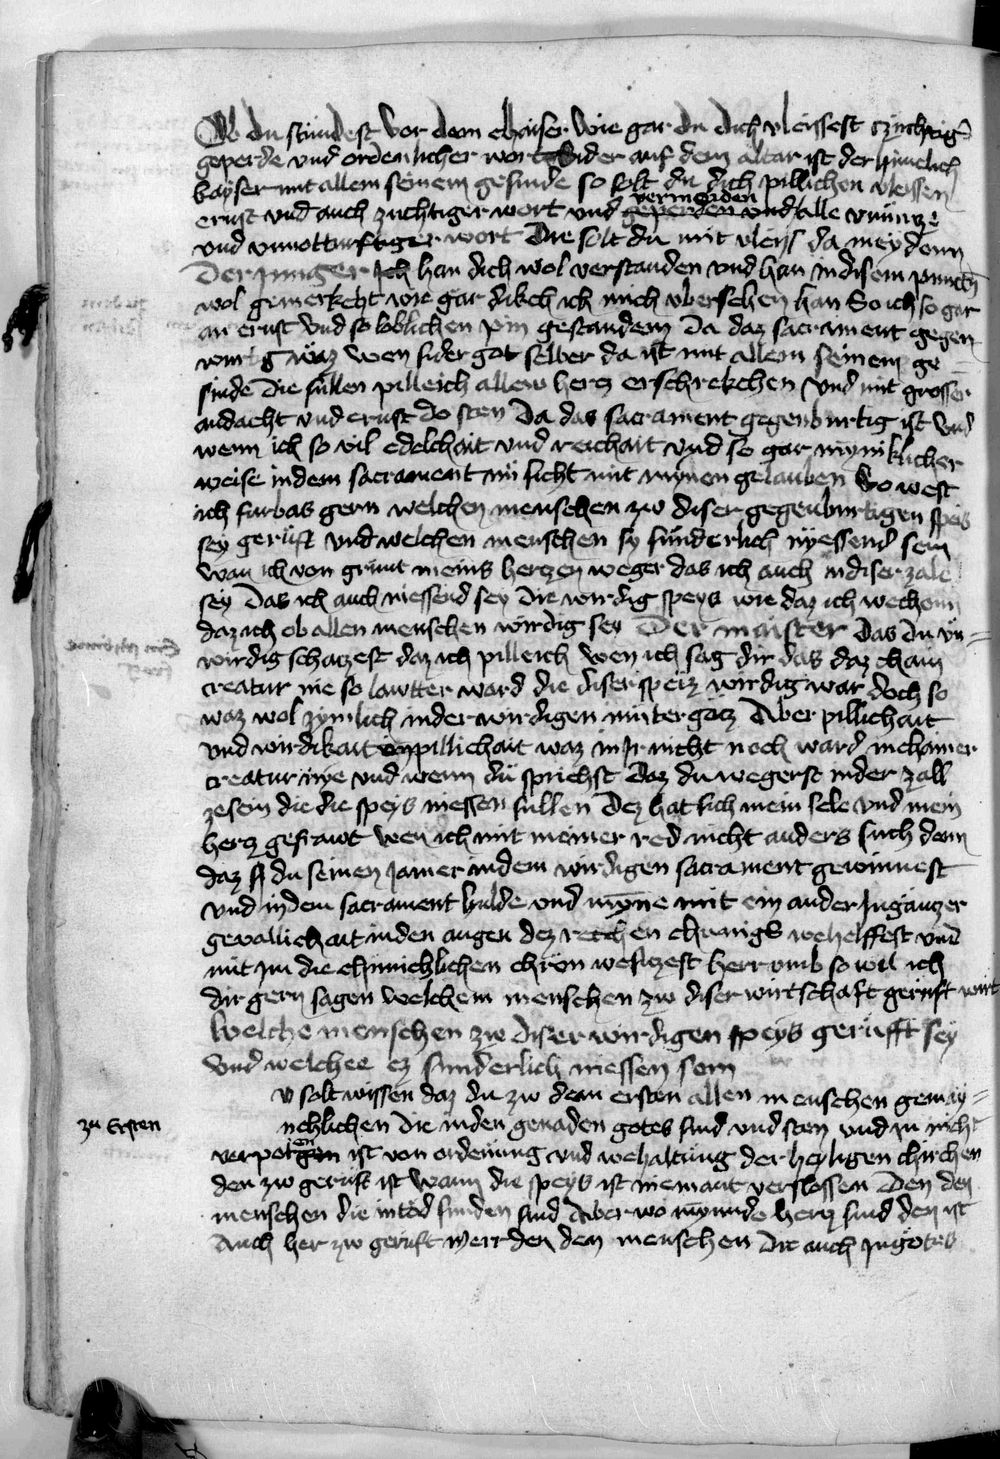 Ob du stündest vor dem chaiser wie gar du dich vleissest czüchtig
geperde vnd ordenlicher wort Sider auf dem altar ist der himelisch
kayser mit allem seinem gesinde so solt du dich pillichen vleissen
vermeiden
ernst vnd auch zuchtiger wort vnd geperden vnd alle vnnucze
vnd vnnotturftiger wort Die solt du mit vleyss da meyden
Der junger Ich han dich wol verstanden vnd han in disem punckt
wol gemerkcht wie gar dikch ich mich vbersehen han So ich so gar
an ernst vnd so loblichen pin gestanden Da daz sacrament gegen
wurtig waz wen sider got selber da ist mit allem seinem ge
sinde Die sullen pilleich allew hercz erschrekchen vnd mit grosser
andacht vnd ernst do sten Da das sacrament gegenburtig ist vnd
wenn ich so vil edelchait vnd reichait vnd so gar mynnklicher
weise in dem sacrament nu sicht mit mynen gelauben So west
ich furbas gern welchen menschen zw diser gegenburtigen speis
sey gerüft vnd welchen menschen sy sünderlich nyessend sein
wan ich von grunt meins herczen weger das ich auch in diser zale
sey Das ich auch niessend sey die wirdig speys wie daz ich wechenn
daz ich ob allen menschen wirdig sey Der maister Das du vn=
wirdig schaczest daz ich pilleich wen ich sag dir das daz chain
creatur nie so lawtter ward die diser speiz wirdig war doch so
waz wol zymlich in der wirdigen muter gotz Aber pillichait
vnd wirdikait vnpillichait waz in ir nicht noch ward in chainer
creatur nye vnd wenn du sprichst Daz du wegerst in der zall
ze sein die die speys niessen sullen Dez hat sich mein sele vnd mein
hercz gefrawt wen ich mit meiner red nicht anders such denn
daz du seinen jamer in dem wirdigen sacrament gewinnest
vnd in dem sacrament hulde vnd mynne mit ein ander In ganczer
geuallichait in den augen dez reichen chunigs wehelffest vnd
mit im die chunichlichen chron wesiczest herr vmb so wil ich
dir gern sagen welchem menschen zw diser wirtschaft gerüft wirt
Welche menschen zw diser wirdigen speys gerüfft sey
vnd welchee ez sunderlich niessen sein
v solt wissen daz du zw dem ersten allen menschen gemay=
zu Ersten
nchlichen die in den genaden gotes sind vnd sten vnd in nicht
verpoten ist von ordenung vnd wehaltung der heyligen chirchen
den zw gerüft ist wann die speys ist niemant verslossen Den den
menschen die in tod sunden sind Aber wo mynnde hercz sind den ist
Auch her zw gerüft werden den menschen die auch In gotes